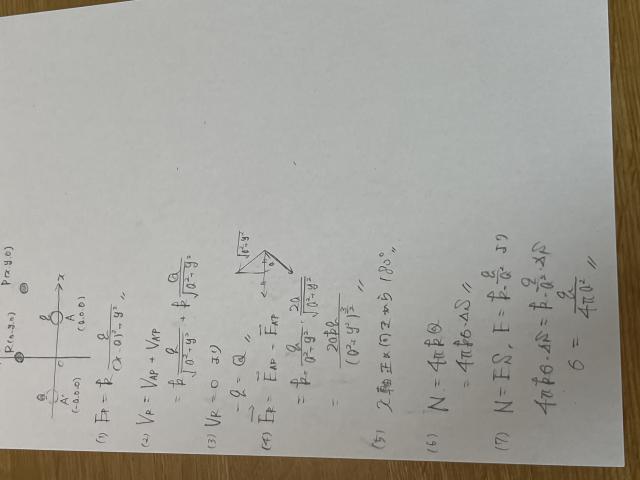 R(0,y,0) P(x,y,0)
Q q x
A' 0 A
(-a,0,0) (a,0,0)
(1) E_P = k q/((x-a)²+y²) 〃
(2) V_R = V_AP + V_A'P
= k q/√(a²+y²) + k Q/√(a²+y²)
(3) V_R = 0 より
-q = Q 〃
√(a²+y²)
(4) E_R = E_AP - E_A'P
= k q/(a²+y²) · 2a/√(a²+y²)
= 2akq/(a²+y²)^(3/2) 〃
(5) x軸正の向きから 180° 〃
(6) N = 4πkQ
= 4πkσ·ΔS 〃
(7) N = ES, E = k q/a² より
4πkσ·ΔS = k q/a² · ΔS
σ = q/4πa² 〃